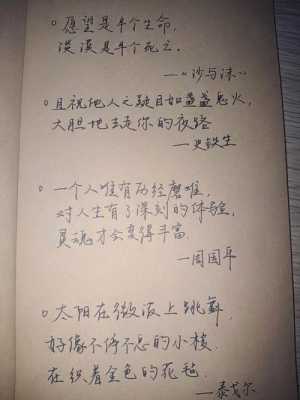 。愿望是半个生命,
漠漠是半个死亡.
—《沙与沫》
。且视他人之疑目如盏盏鬼火,
大胆地去走你的夜路
—史铁生
。一个人唯有历经磨难,
对人生有了深刻的体验,
灵魂才会变得丰富.
—周国平
。太阳在微波上跳舞,
好像不停不息的小梭.
在织着金色的花毡.
—泰戈尔